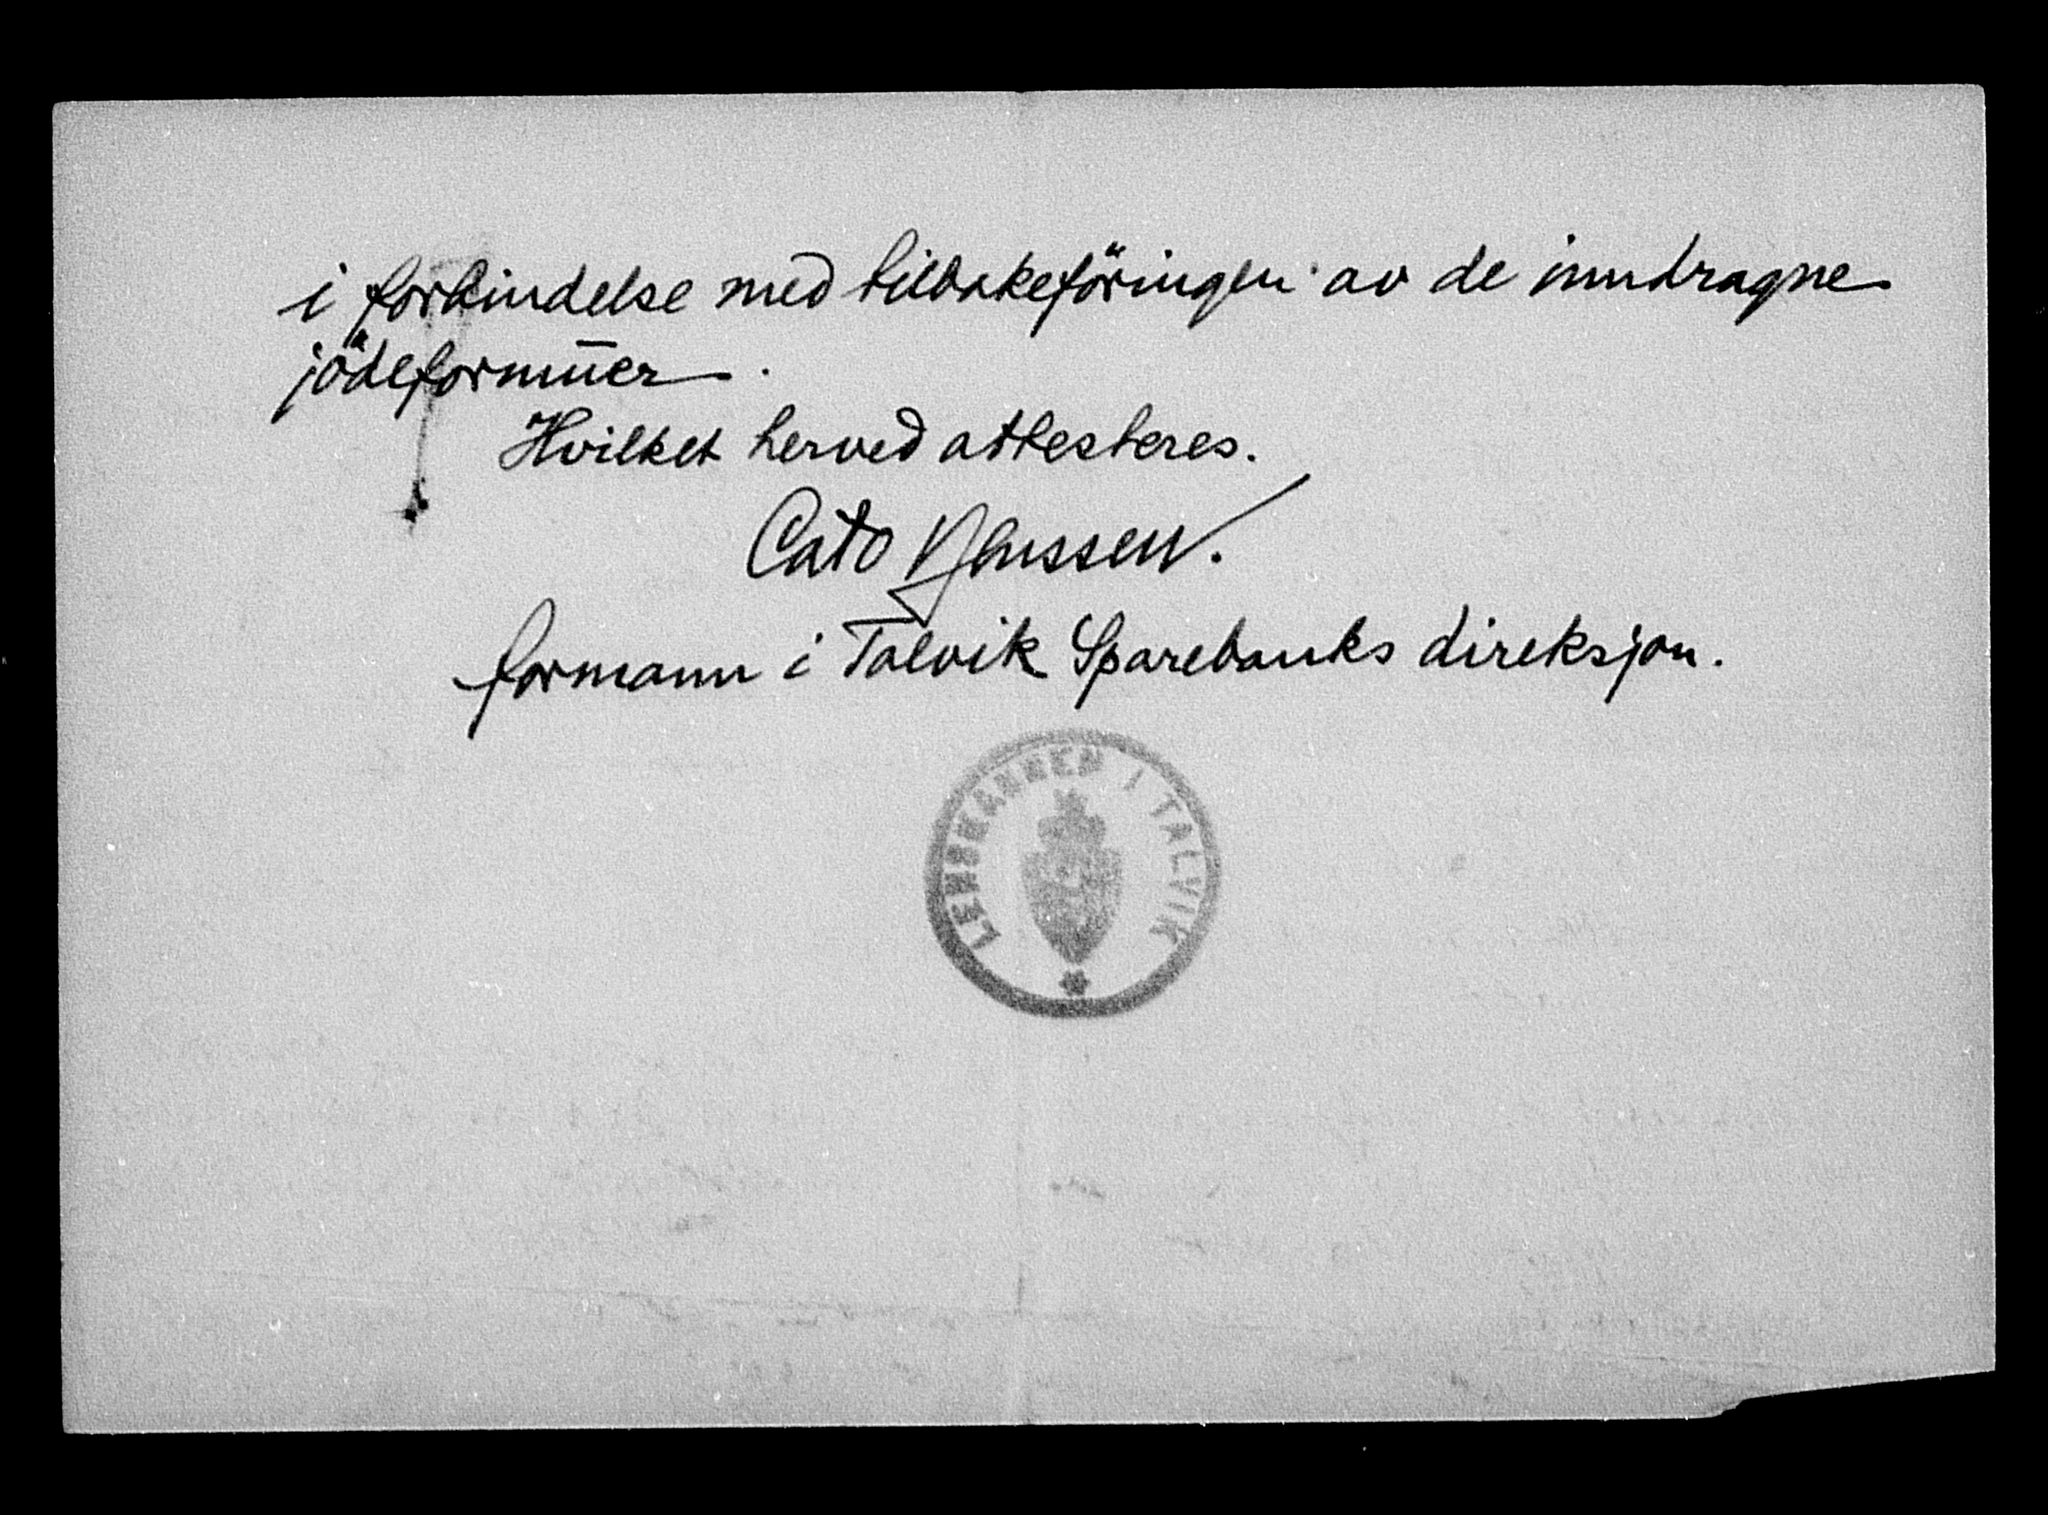 i forbindelse med tilbakeföringen av de inndragne
jödeformuer.
Hvilket herved attesteres.
Cato Jenssen.
formann i Talvik Sparebanks direksjon.
LENSMANNEN I TALVIK